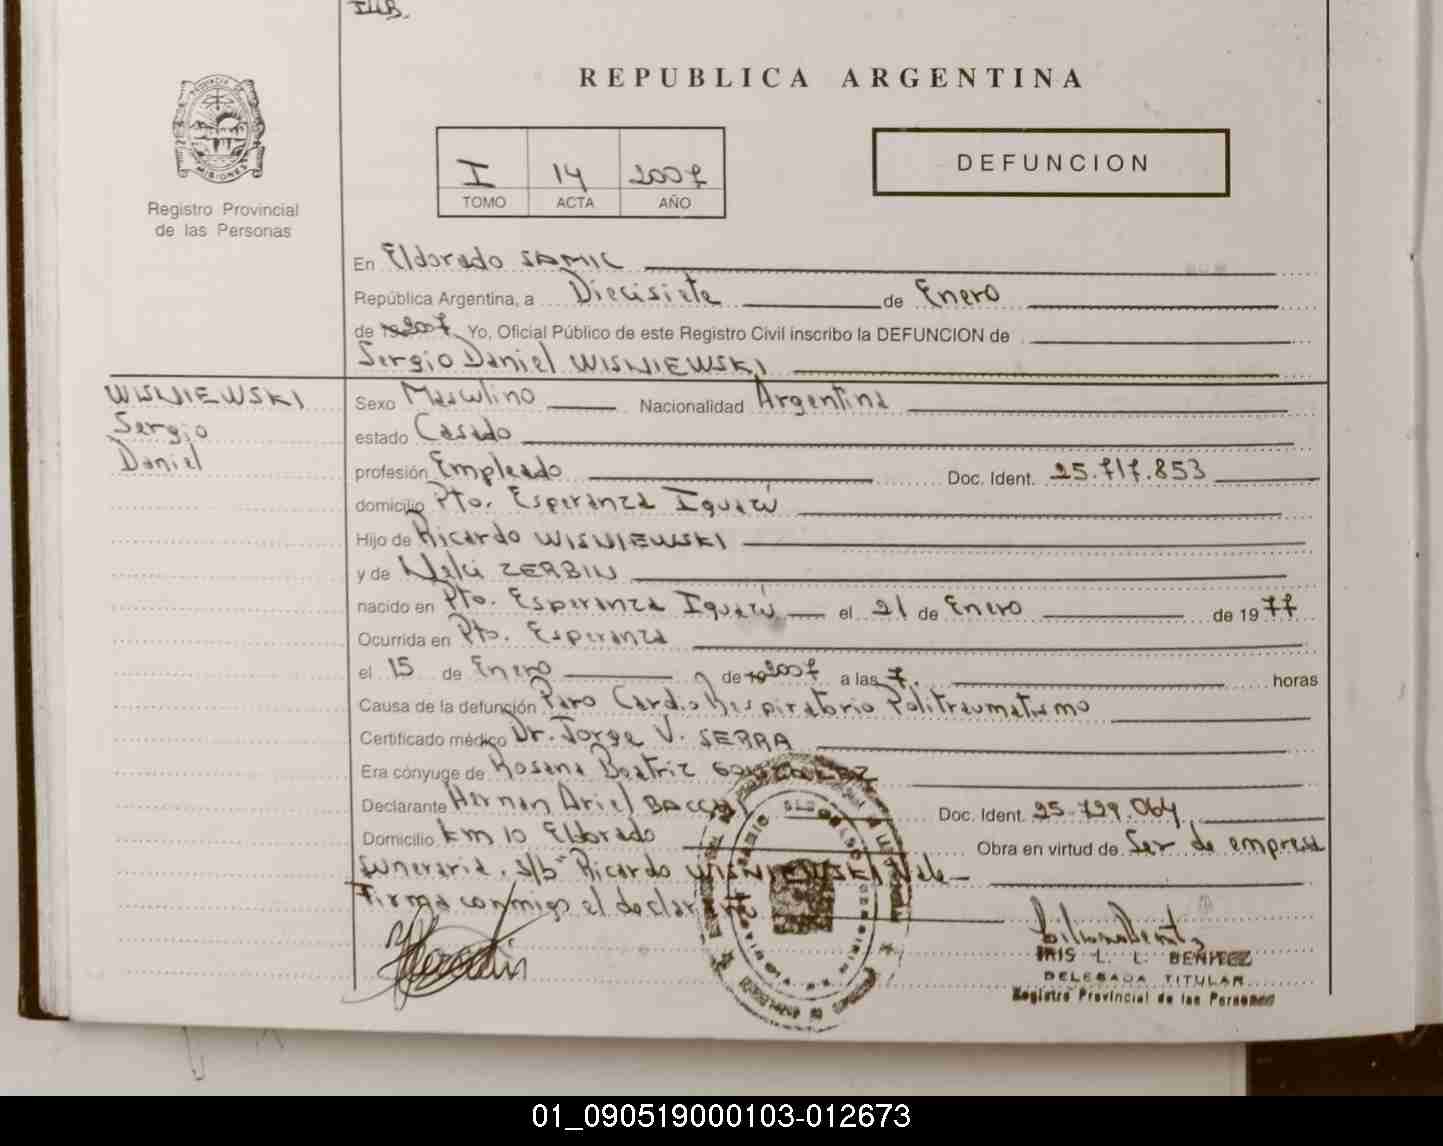 REPUBLICA ARGENTINA
PROVINCIA
MISIONES
Registro Provincial
de las Personas
I 14 2007
TOMO ACTA AÑO
DEFUNCION
En Eldorado SAMIC
República Argentina, a Diecisiete de Enero
de 19 2007 Yo, Oficial Público de este Registro Civil inscribo la DEFUNCION de
Sergio Daniel WISNIEWSKI
WISNIEWSKI
Sergio
Daniel
Sexo Masculino Nacionalidad Argentina
estado Casado
profesión Empleado Doc. Ident. 25.717.853
domicilio Pto. Esperanza Iguazú
Hijo de Ricardo WISNIEWSKI
y de Neli ZERBIN
nacido en Pto. Esperanza Iguazú el 21 de Enero de 1977
Ocurrida en Pto. Esperanza
el 15 de Enero de 19 2007 a las 7. horas
Causa de la defunción Paro Cardio Respiratorio Politraumatismo
Certificado médico Dr. Jorge V. SERRA
Era cónyuge de Rosana Beatriz GONZALEZ
Declarante Hernan Ariel Doc. Ident. 25.729.064
Domicilio km 10 Eldorado Obra en virtud de Ser de empresa
funeraria. S/b Ricardo WISNIEWSKI Vale
Firma conmigo el declarante
IRIS L. L. BENITEZ
DELEGADA TITULAR
Registro Provincial de las Personas
01_090519000103-012673